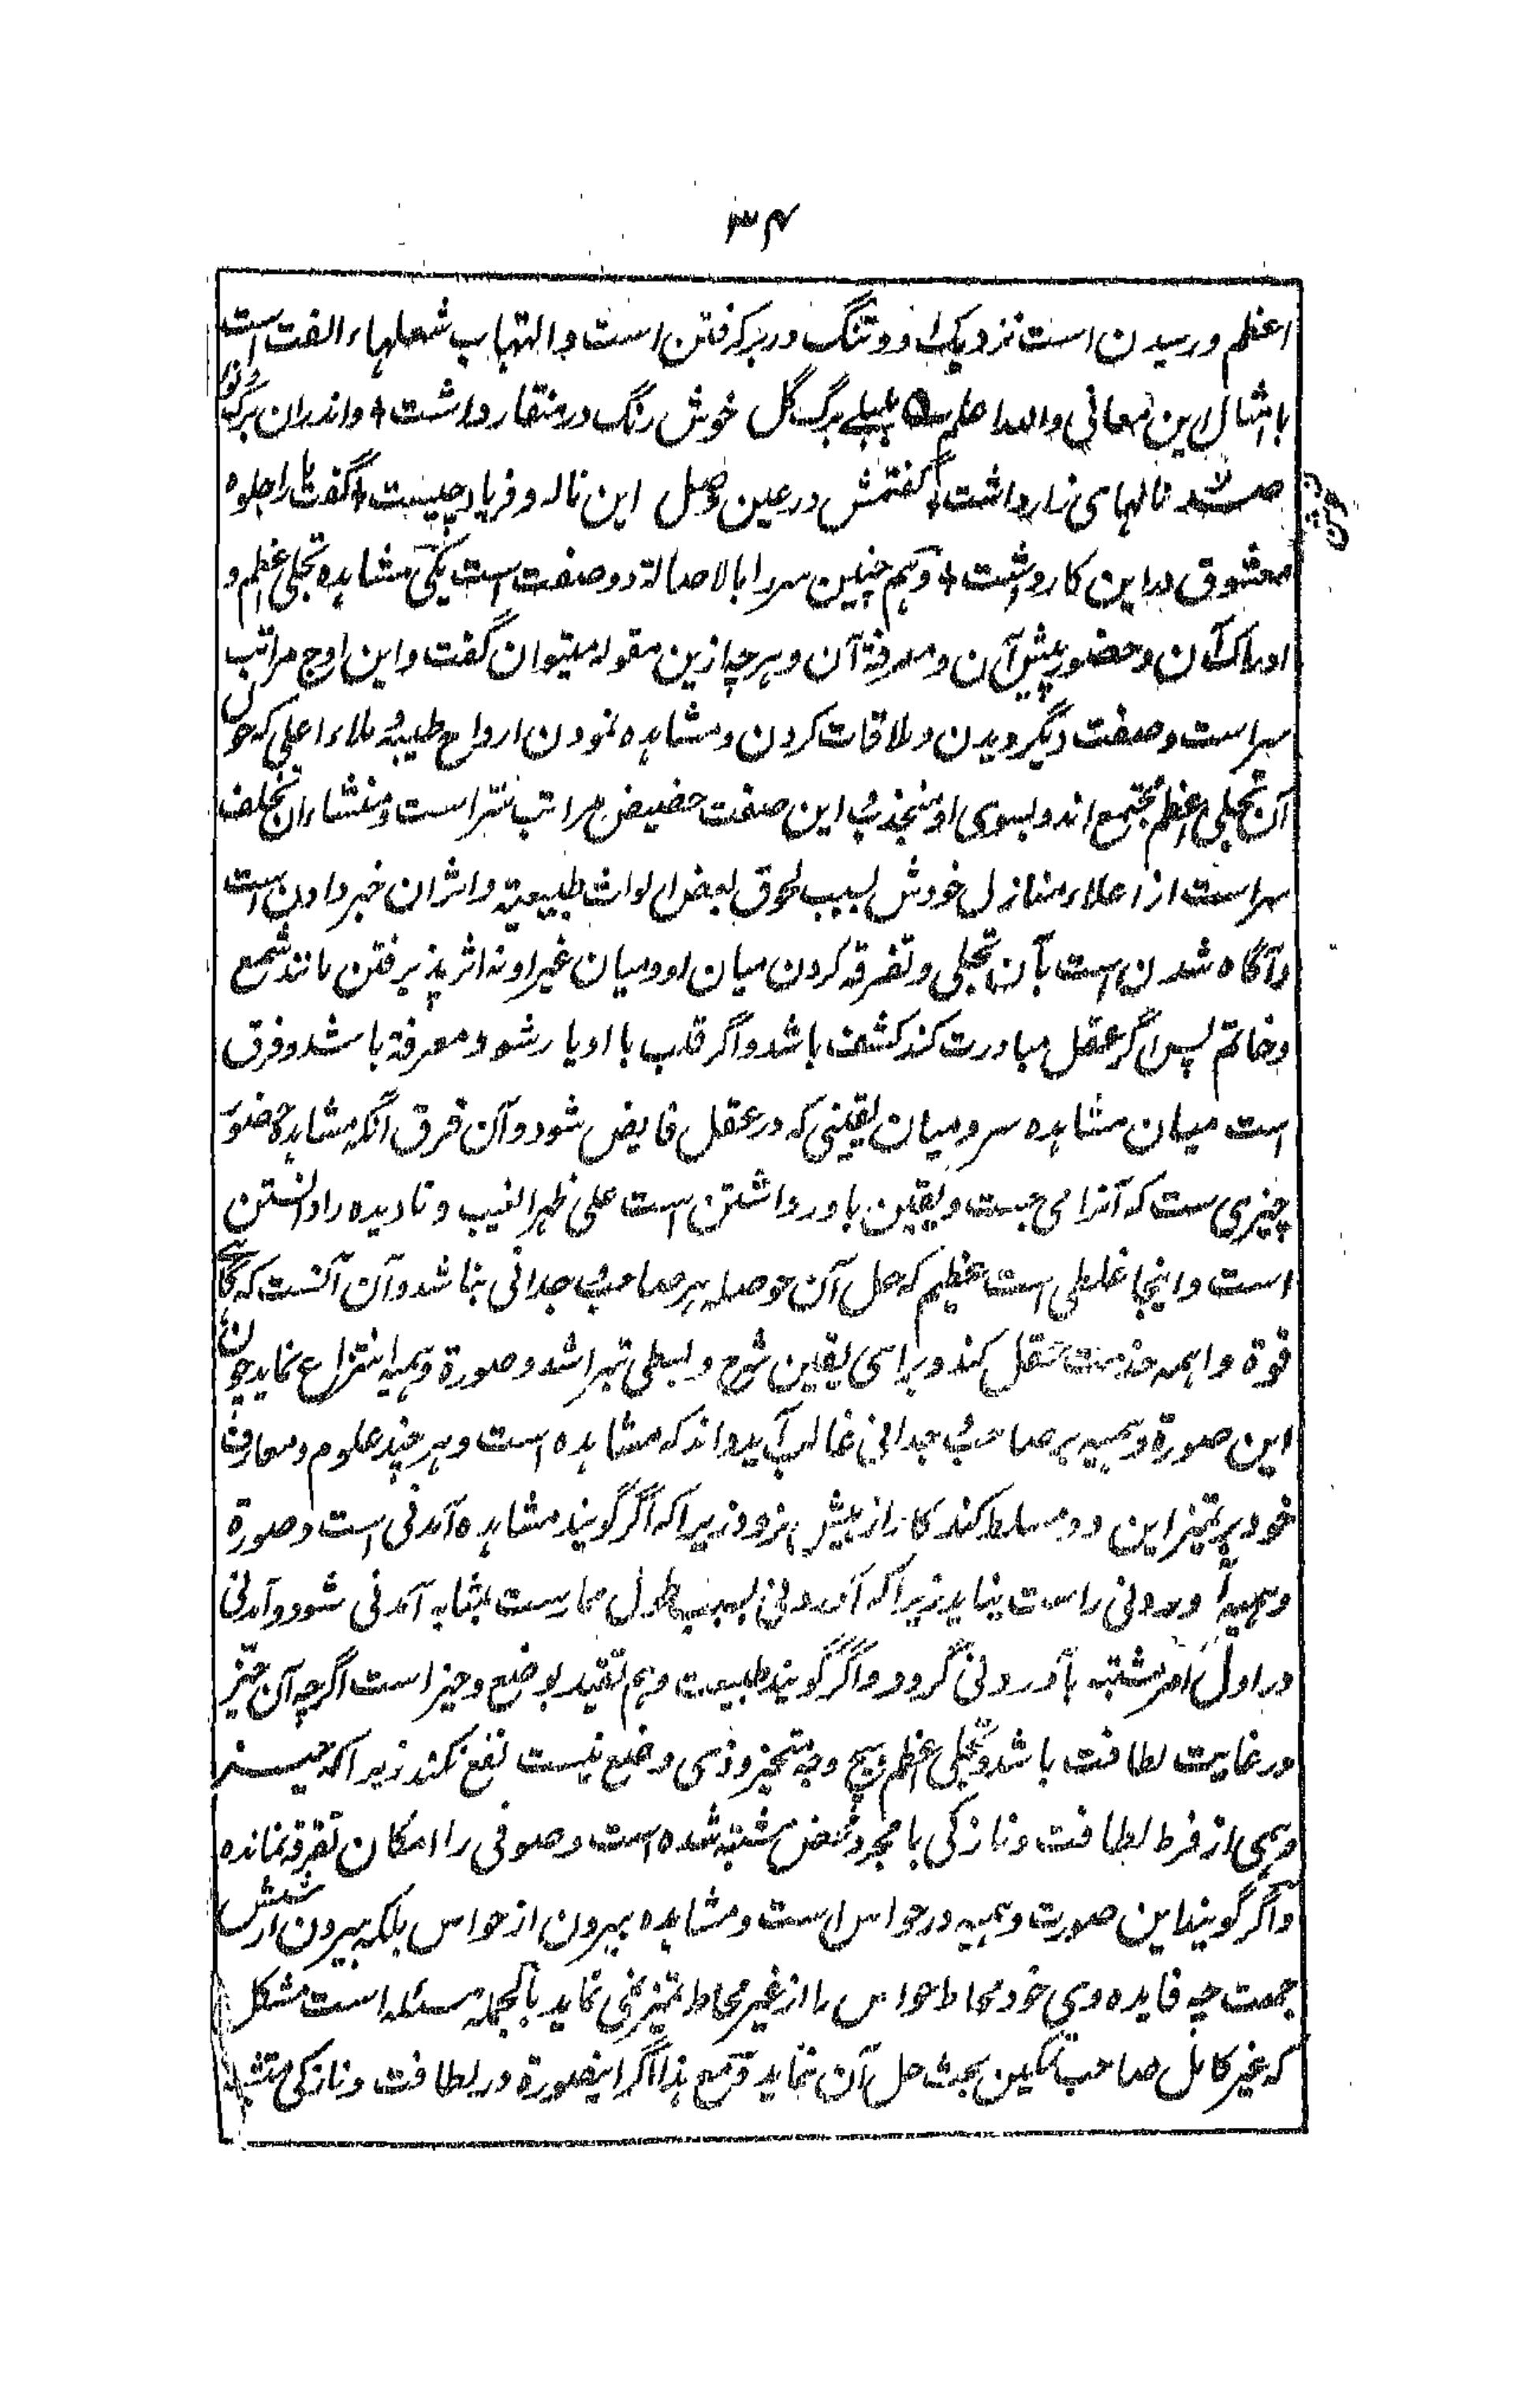 ۳۴
اعظم و رسیدن است نزدیک او و تنگ در بر گرفتن است و التهاب شعلهاء الفت است
با امثال این معانی والله اعلم بلبلے برگ گل خوش رنگ در منقار داشت + واندران برگ و نوا
صد ناله‌های زار داشت + گفتمش در عین وصل این ناله و فریاد چیست + گفت ما را جلوه
معشوق در این کار داشت + و هم چنین سر را بالاصالة دو صفت است یکی مشاهده تجلی اعظم و
ادراک آن و حضور پیش آن و معرفة آن و هر چه ازین مقوله میتوان گفت و این اوج مراتب
سر است و صفت دیگر دیدن و ملاقات کردن و مشاهده نمودن ارواح طیبه ملاء اعلی که حول
آن تجلی اعظم مجتمع اند و بسوی او منجذب این صفت حضیض مراتب سر است و منشاء ان تخلف
سر است از اعلاء منازل خودش بسبب لحوق بعض الواث طبیعیة و اثر ان خبر دادن است
و آگاه شدن است بآن تجلی و تفرقه کردن میان او و میان غیر او نه اثر پذیرفتن مانند شمع
و خاتم پس اگر عقل مبادرت کند کشف باشد و اگر قلب با او یار شود معرفة باشد و فرق
است میان مشاهده سر و میان یقینی که در عقل فایض شود و آن فرق آنکه مشاهده حضور
چیزی ست که آنرا می جست و یقین باور داشتن است علی ظهر الغیب و نادیده را دانستن
است و اینجا غلطی است عظیم که حل آن حوصله هر صاحب وجدانی نباشد و آن آنست که گاهے
قوة واهمه خدمت عقل کند و برای یقین شرح و بسطی تراشد و صورة وهمیه انتزاع نماید چون
این صورة وهمیه بر صاحب وجدانی غالب آید داند که مشاهده است و هر چند علوم و معارف
خود بر تمیز این دو مسلط کند کار از پیش نرود زیرا که اگر گویند مشاهده آمدنی است و صورة
وهمیه آوردنی راست نیاید زیرا که آوردنی بسبب طول ممارست بمثابه آمدنی شود و آمدنی
در اول امر مشتبه بآوردنی گردد و اگر گویند طبیعت وهم تقید بوضع و حیز است اگرچه آن حیز
در غایت لطافت باشد و تجلی اعظم بهیچ وجه متحیز و ذی وضع نیست نفع نکند زیرا که حیز
وهمی از فرط لطافت و نازکی با مجرد محض مشتبه شده است و صوفی را امکان تفرقه نمانده
و اگر گویند این صورت وهمیه در حواس است و مشاهده بیرون از حواس بلکه بیرون از شش
جهت چه فایده وی خود محاط حواس را از غیر محاط تمیز نمی نماید بالجمله مسئله است مشکل
که غیر کامل صاحب تمکین بحث حل آن ننماید و مع هذا اگر اینصورة در لطافت و نازکی متشبه